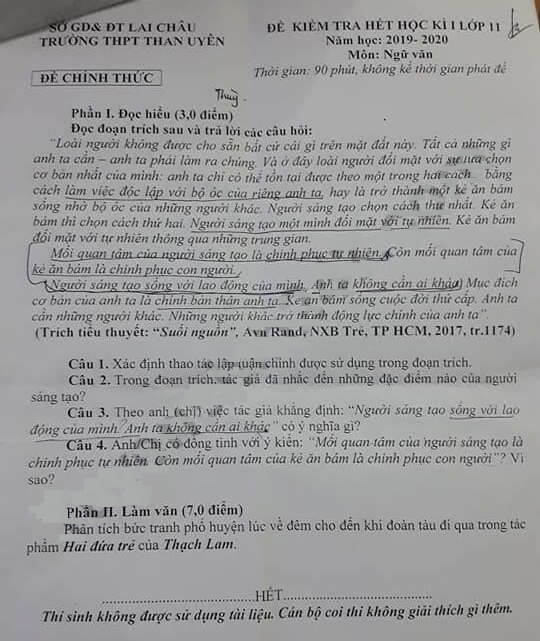 SỞ GD& ĐT LAI CHÂU
TRƯỜNG THPT THAN UYÊN
ĐỀ CHÍNH THỨC
ĐỀ KIỂM TRA HẾT HỌC KÌ I LỚP 11
Năm học: 2019- 2020
Môn: Ngữ văn
Thời gian: 90 phút, không kể thời gian phát đề
Thuỳ
Phần I. Đọc hiểu (3,0 điểm)
Đọc đoạn trích sau và trả lời các câu hỏi:
"Loài người không được cho sẵn bất cứ cái gì trên mặt đất này. Tất cả những gì
anh ta cần – anh ta phải làm ra chúng. Và ở đây loài người đối mặt với sự lựa chọn
cơ bản nhất của mình: anh ta chỉ có thể tồn tại được theo một trong hai cách – bằng
cách làm việc độc lập với bộ óc của riêng anh ta, hay là trở thành một kẻ ăn bám
sống nhờ bộ óc của những người khác. Người sáng tạo chọn cách thứ nhất. Kẻ ăn
bám thì chọn cách thứ hai. Người sáng tạo một mình đối mặt với tự nhiên. Kẻ ăn bám
đối mặt với tự nhiên thông qua những trung gian.
Mối quan tâm của người sáng tạo là chinh phục tự nhiên. Còn mối quan tâm của
kẻ ăn bám là chinh phục con người.
Người sáng tạo sống với lao động của mình. Anh ta không cần ai khác. Mục đích
cơ bản của anh ta là chính bản thân anh ta. Kẻ ăn bám sống cuộc đời thứ cấp. Anh ta
cần những người khác. Những người khác trở thành động lực chính của anh ta"
(Trích tiểu thuyết: "Suối nguồn", Ayn Rand, NXB Trẻ, TP HCM, 2017, tr.1174)
Câu 1. Xác định thao tác lập luận chính được sử dụng trong đoạn trích.
Câu 2. Trong đoạn trích, tác giả đã nhắc đến những đặc điểm nào của người
sáng tạo?
Câu 3. Theo anh (chị) việc tác giả khẳng định: "Người sáng tạo sống với lao
động của mình. Anh ta không cần ai khác" có ý nghĩa gì?
Câu 4. Anh/Chị có đồng tình với ý kiến: "Mối quan tâm của người sáng tạo là
chinh phục tự nhiên. Còn mối quan tâm của kẻ ăn bám là chinh phục con người"? Vì
sao?
Phần II. Làm văn (7,0 điểm)
Phân tích bức tranh phố huyện lúc về đêm cho đến khi đoàn tàu đi qua trong tác
phẩm Hai đứa trẻ của Thạch Lam.
HẾT
Thí sinh không được sử dụng tài liệu. Cán bộ coi thi không giải thích gì thêm.